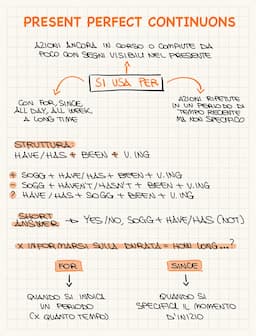 PRESENT PERFECT CONTINUONS
AZIONI ANCORA IN CORSO O COMPIUTE DA
POCO CON SEGNI VISIBILI NEL PRESENTE
SI USA PER
CON FOR, SINCE,
ALL DAY, ALL WEEK,
A LONG TIME
AZIONI RIPETUTE
IN UN PERIODO DI
TEMPO RECENTE
MA NON SPECIFICO
STRUTTURA
HAVE/HAS + BEEN + V.ING
+ SOGG + HAVE/HAS + BEEN + V.ING
- SOGG + HAVEN'T/HASN'T + BEEN + V.ING
? HAVE/HAS + SOGG + BEEN + V.ING
SHORT
ANSWER → YES/NO, SOGG + HAVE/HAS (NOT)
X INFORMARSI SULLA DURATA = HOW LONG...?
FOR
SINCE
QUANDO SI INDICA
UN PERIODO
(X QUANTO TEMPO)
QUANDO SI
SPECIFICA IL MOMENTO
D'INIZIO